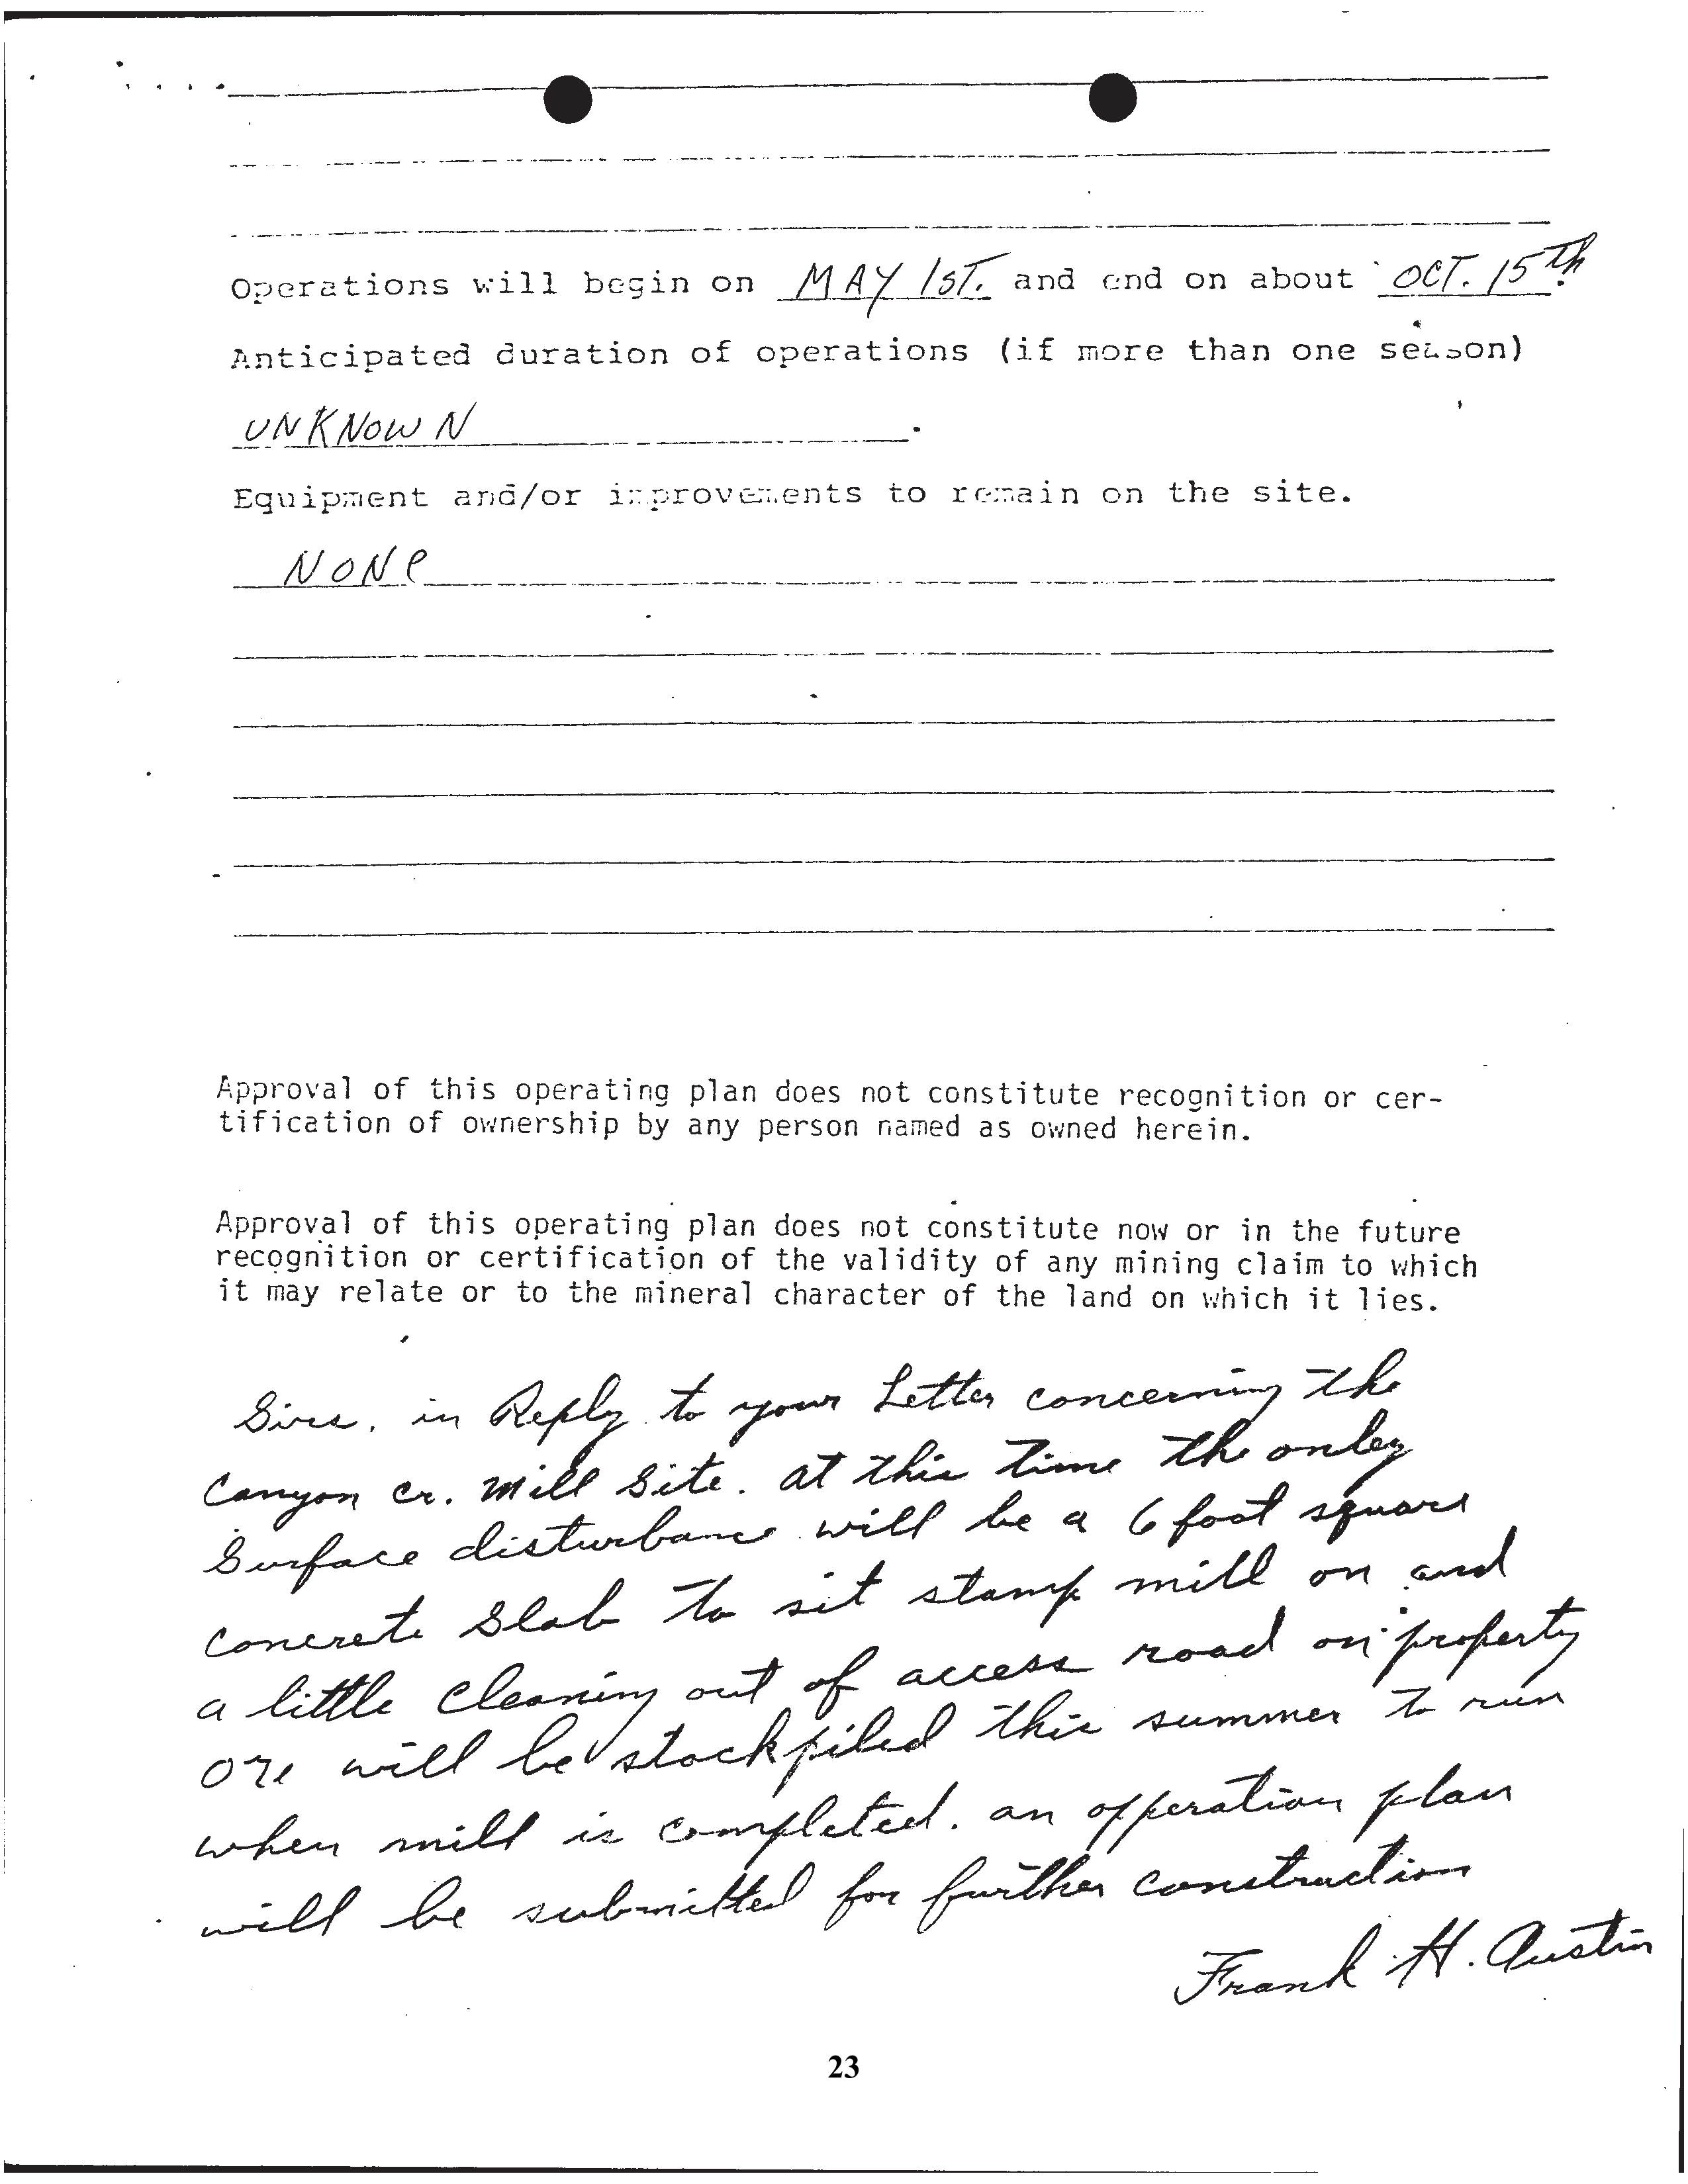 Operations will begin on MAY 1ST. and end on about OCT. 15th.
Anticipated duration of operations (if more than one season)
UNKNOWN .
Equipment and/or improvements to remain on the site.
NONe
Approval of this operating plan does not constitute recognition or cer-
tification of ownership by any person named as owned herein.
Approval of this operating plan does not constitute now or in the future
recognition or certification of the validity of any mining claim to which
it may relate or to the mineral character of the land on which it lies.
Sirs, in Reply to your Letter concerning the
Canyon cr. Mill Site. at this time the onley
Surface disturbance will be a 6 foot square
concrete slab to sit stamp mill on and
a little cleaning out of access road on property
ore will be stockpiled this summer to run
when mill is completed. an opperation plan
will be submitted for further construction
Frank H. Austin
23